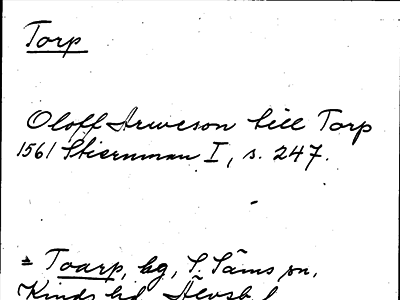 Torp
Oloff Arweson till Torp
1561 Stiernman I, s. 247.
= Toarp, bg, S. Säms sn,
Kinds hd, Älvsb. l